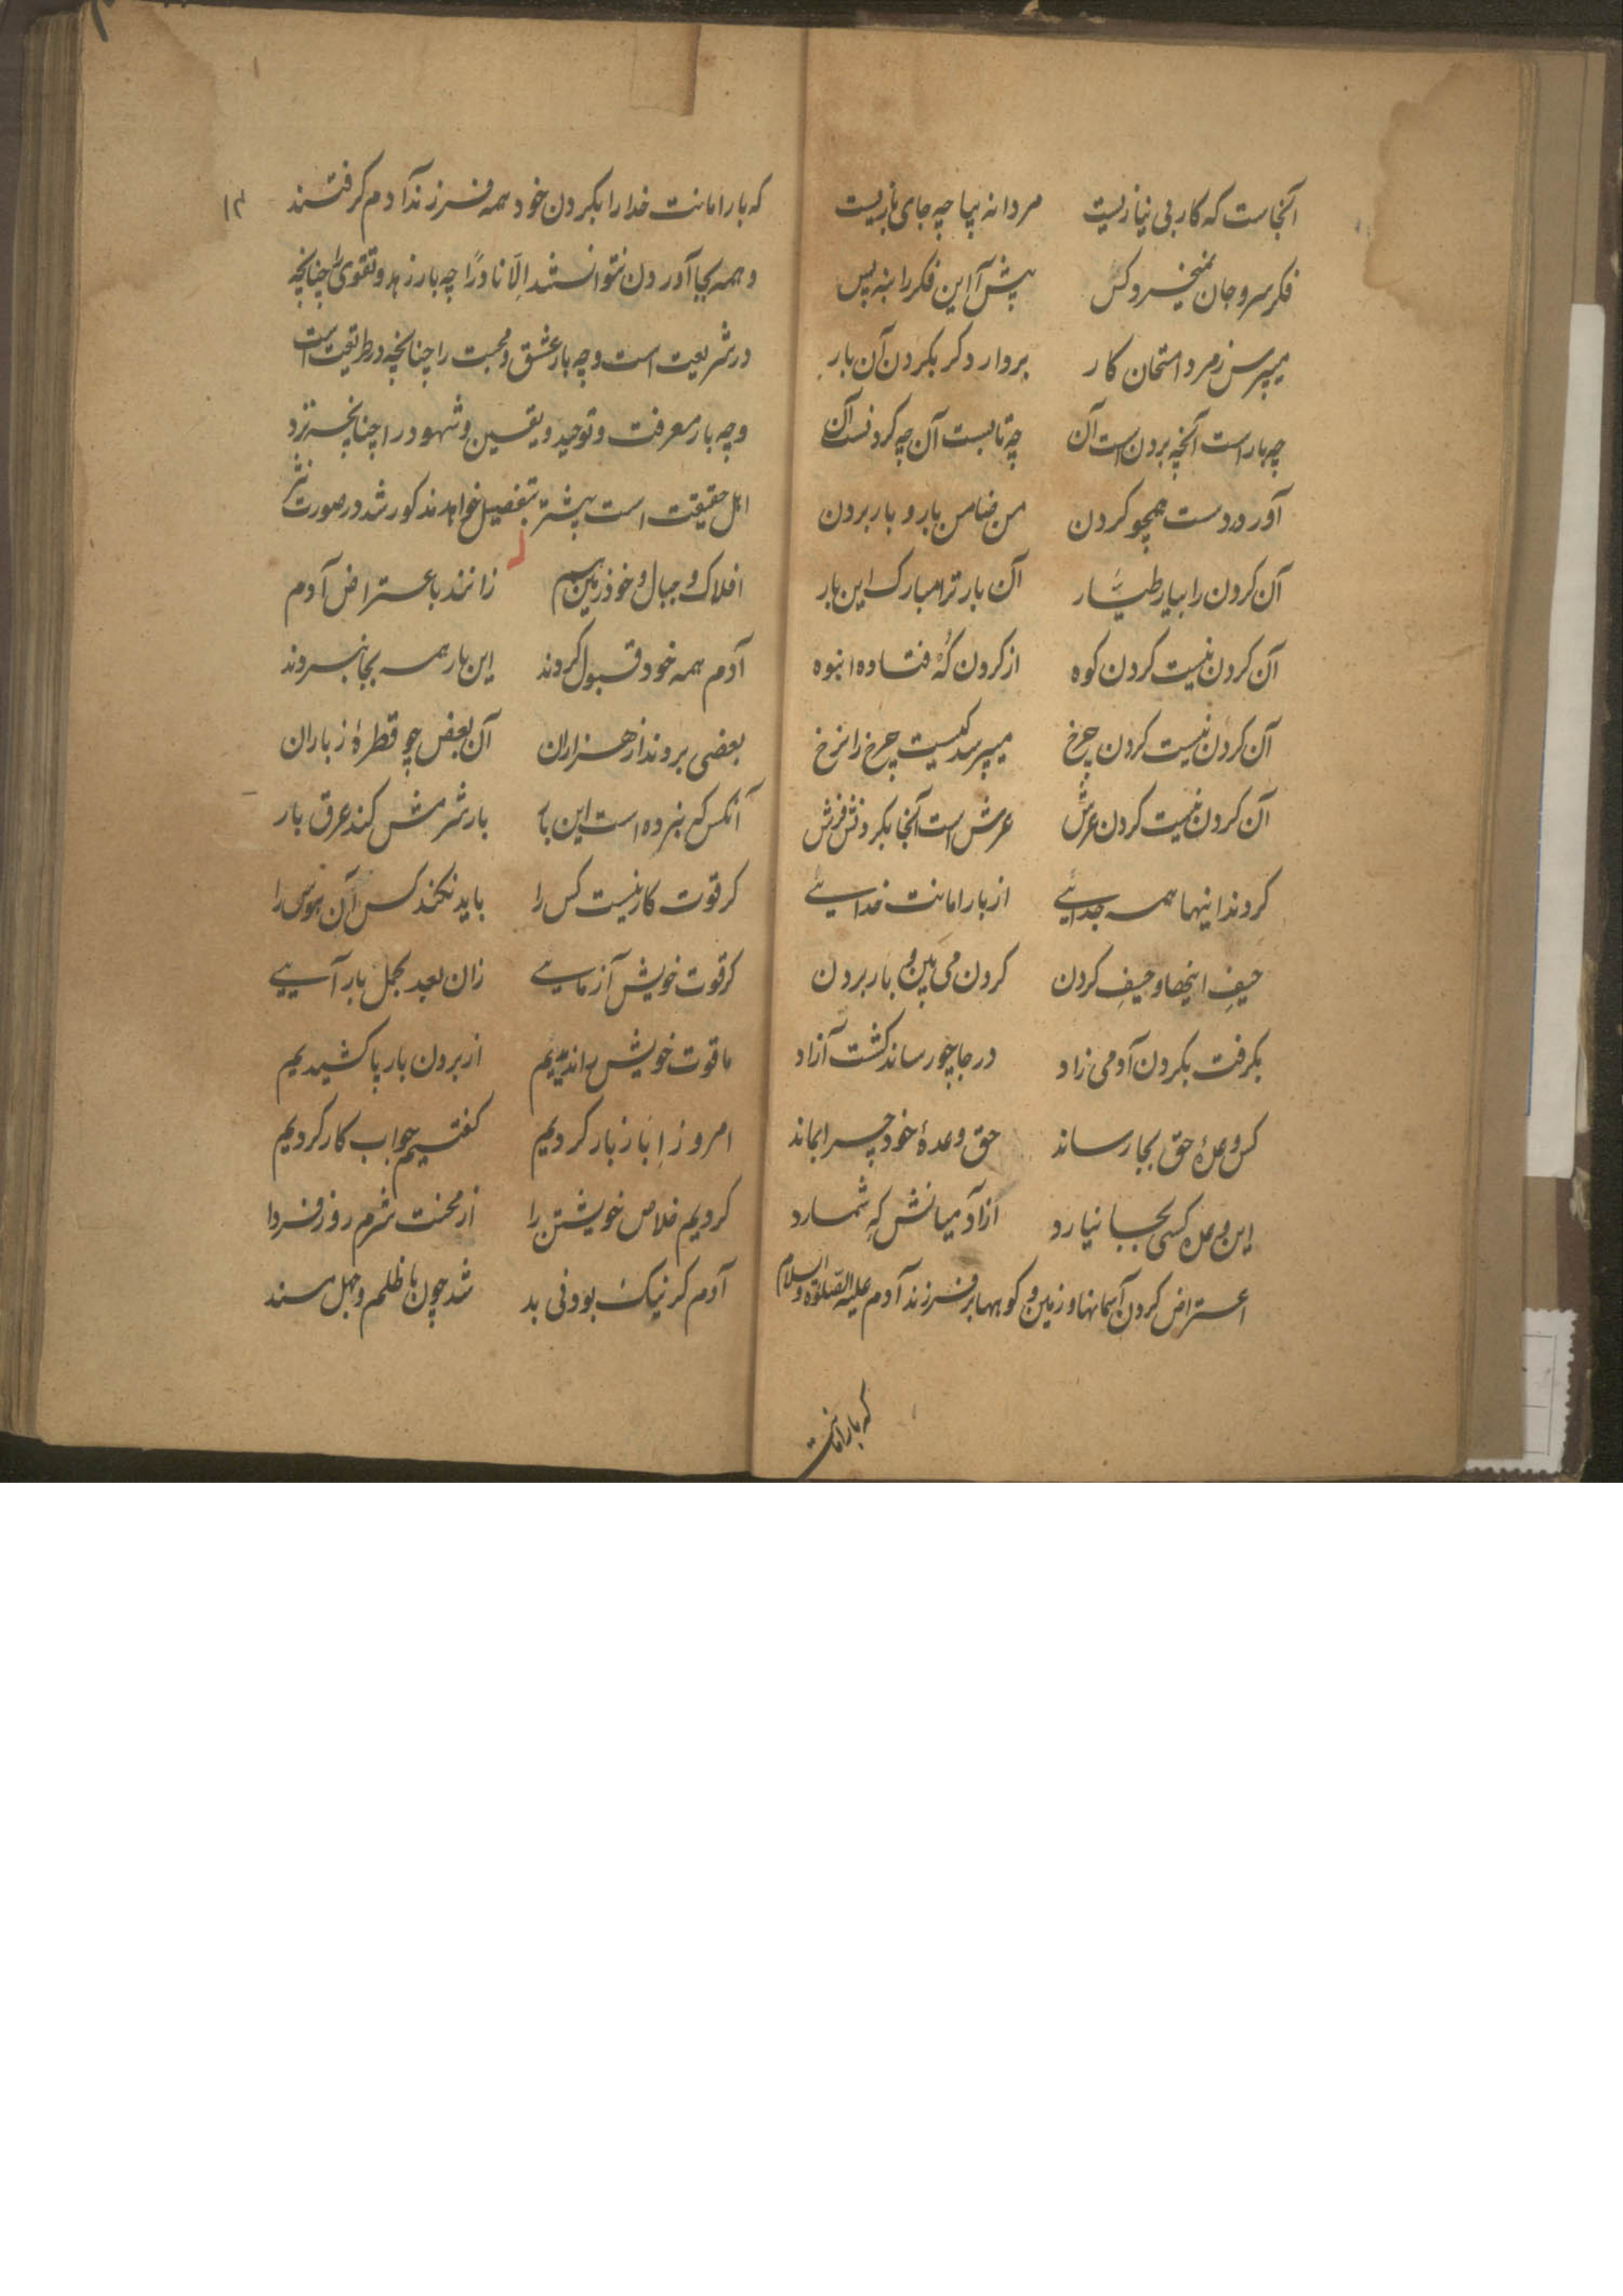 آنجاست که کار بی نیازیست مردانه بیا چه جای بازیست
فکر سر و جان نمیخرد کس پیش آ این فکر را بنه پس
میپرس ز مرد امتحان کار بردار دگر بگردن آن بار
چه بار است آنچه بردن است آن چه تابست آن چه گردنست آن
آورد دست همچو گردن من ضامن بار و بار بردن
آن گردن را بیار طیار آن بار ترا مبارک این بار
آن گردن نیست گردن کوه از گردن که فتاده انبوه
آن گردن نیست گردن چرخ میپرسد کیست چرخ را نرخ
آن گردن نیست گردن عرش عرش است آنجا بگردنش فرش
کردند اینها همه جدائی از بار امانت خدایی
حیف اینها و حیف گردن گردن می بین و بار بردن
بگرفت بگردن آدمی زاد در جا چو رساند گشت آزاد
کس وعدهٔ حق بجا رساند حق وعدهٔ خود چرا بماند
این وعده کسی بجا نیارد از آدمیانش که شمارد
اعتراض کردن آسمانها و زمین و کوهها بر فرزند آدم علیه الصلوة والسلام
که بار امانت
۱۲
که بار امانت خدا را بگردن خود همه فرزند آدم گرفتند
و همه بجا آوردن نتوانستند الّا نادرًا چه بار زهد و تقوی را چنانچه
در شریعت است و چه بار عشق و محبت را چنانچه در طریقت است
و چه بار معرفت و توحید و یقین و شهود را چنانچه نزد
اهل حقیقت است پیشتر بتفصیل خواهد مذکور شد در صورت نثر
افلاک و جبال و خود زمین هم زانند باعتراض آدم
آدم همه خود قبول کردند این بار همه بجا نبردند
بعضی بردند از هزاران آن بعض چو قطرهٔ ز باران
آنکس که نبرده است این بار بار شرمش کند عرق بار
گر قوت کار نیست کس را باید نکند کس آن هوس را
گر قوت خویش آزمایی زان بعد بحمل بار آیی
ما قوت خویش را ندیدیم از بردن بار پا کشیدیم
امروز ابا ز بار کردیم گفتیم جواب کار کردیم
کردیم خلاص خویشتن را از محنت شرم روز فردا
آدم گر نیک بود نی بد شد چون با ظلم و جهل مسند